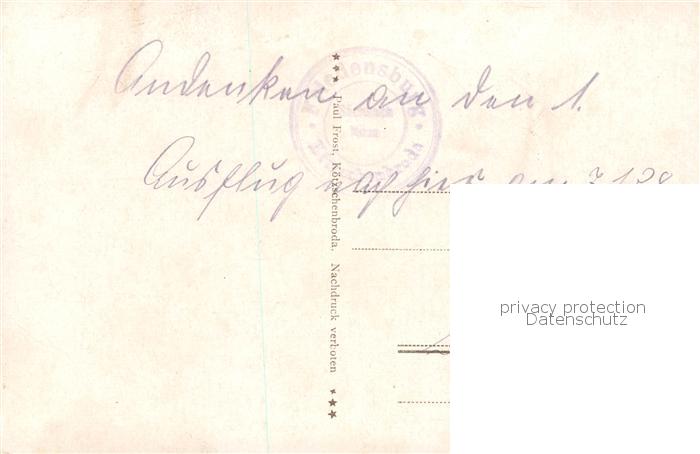 Andenken an den 1.
Ausflug nach hier am
Paul Frost, Kötzschenbroda. Nachdruck verboten
privacy protection
Datenschutz